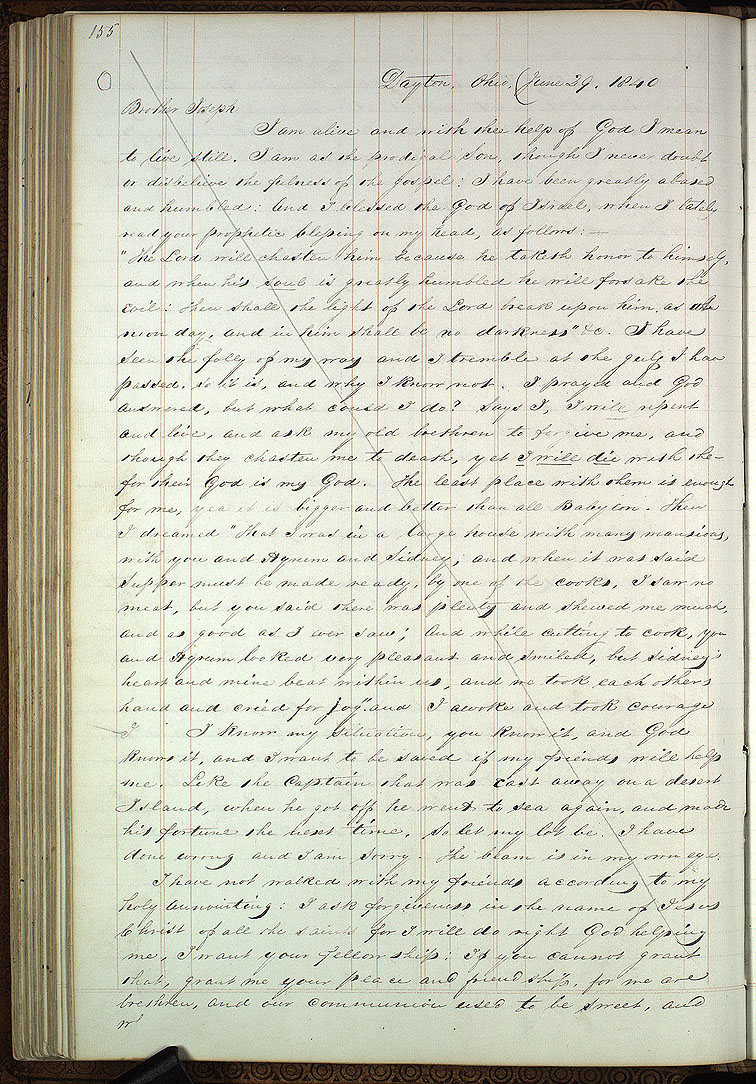 155
Dayton, Ohio, (June 29. 1840
Brother Joseph
I am alive and with thee help of God I mean
to live still. I am as the prodigal Son, though I never doubt
or disbelieve the fulness of the gospel: I have been greatly abased
and humbled: and I blessed the God of Israel, when I lately
read your prophetic blessing on my head, as follows: —
"The Lord will chasten him because he taketh honor to himself,
and when his soul is greatly humbled he will forsake the
evil: then shall the light of the Lord break upon him, as at
noon day, and in him shall be no darkness" &c. I have
seen the folly of my way and I tremble at the gulf I have
passed. so it is, and why I know not. I prayed and God
answered, but what could I do? Says I, I will repent
and live, and ask my old brethren to forgive me, and
though they chasten me to death, yet I will die with the-
for their God is my God. The least place with them is enough
for me, yea it is bigger and better than all Babylon. Then
I dreamed "That I was in a large house with many mansions,
with you and Hyrum and Sidney; and when it was said
Supper must be made ready, by one of the cooks, I saw no
meat, but you said there was plenty and shewed me much,
and as good as I ever saw; And while cutting to cook, you
and Hyrum looked very pleasant and smiled, but Sidney's
heart and mine beat within us, and we took each others
hand and cried for joy". and I awoke and took courage
I I know my situation, you know it, and God
knows it, and I want to be saved if my friends will help
me. Like the Captain that was cast away on a desert
Island, when he got off he went to sea again, and made
his fortune the next time, so let my lot be. I have
done wrong and I am sorry. The beam is in my own eye.
I have not walked with my friends according to my
holy annointing: I ask forgiveness in the name of Jesus
Christ of all the saints for I will do right God helping
me, I want your fellowship: If you cannot grant
that, grant me your peace and friendship, for we are
brethren, and our communion used to be sweet, and